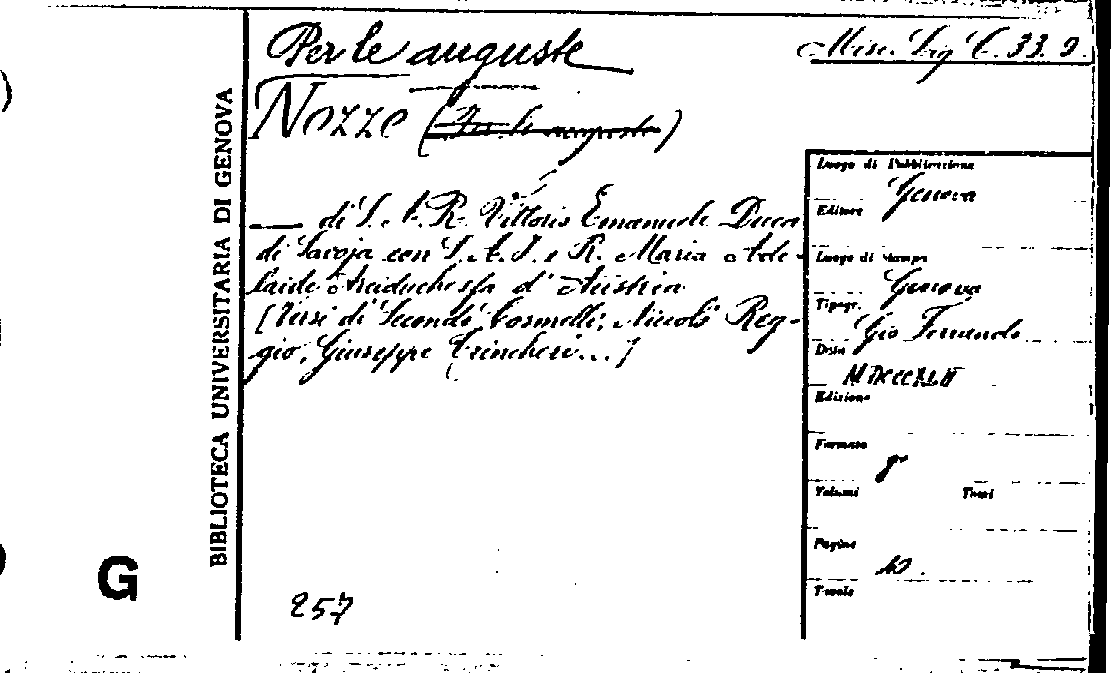 Per le auguste
Misc. Lig. C. 33. 9.
Nozze (Per le auguste)
___ di S. A. R. Vittorio Emanuele Duca
di Savoja con S. A. I. e R. Maria Ade-
laide Arciduchessa d'Austria
[Versi di Secondi, Cosmelli, Niccolò Reg-
gio, Giuseppe Crincheri...]
257
BIBLIOTECA UNIVERSITARIA DI GENOVA
G
Luogo di Pubblicazione
Genova
Editore
Luogo di stampa
Genova
Tipogr.
Gio Ferrando
Data
MDCCCXLII
Edizione
Formato
8°
Volumi Tomi
Pagine
Tavole